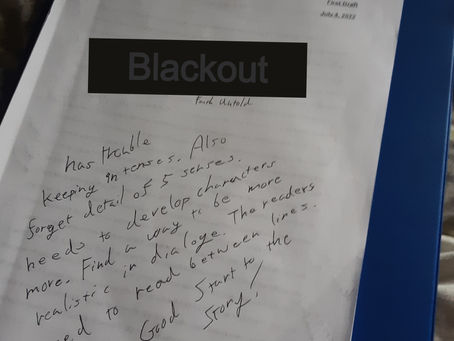 First Draft
July 4, 2012
Blackout
Faith Untold
has trouble
keeping in tenses. Also
forget detail of 5 senses.
needs to develop characters
more. Find a way to be more
realistic in dialoge. The readers
to read between lines.
Good Start to the
Story!